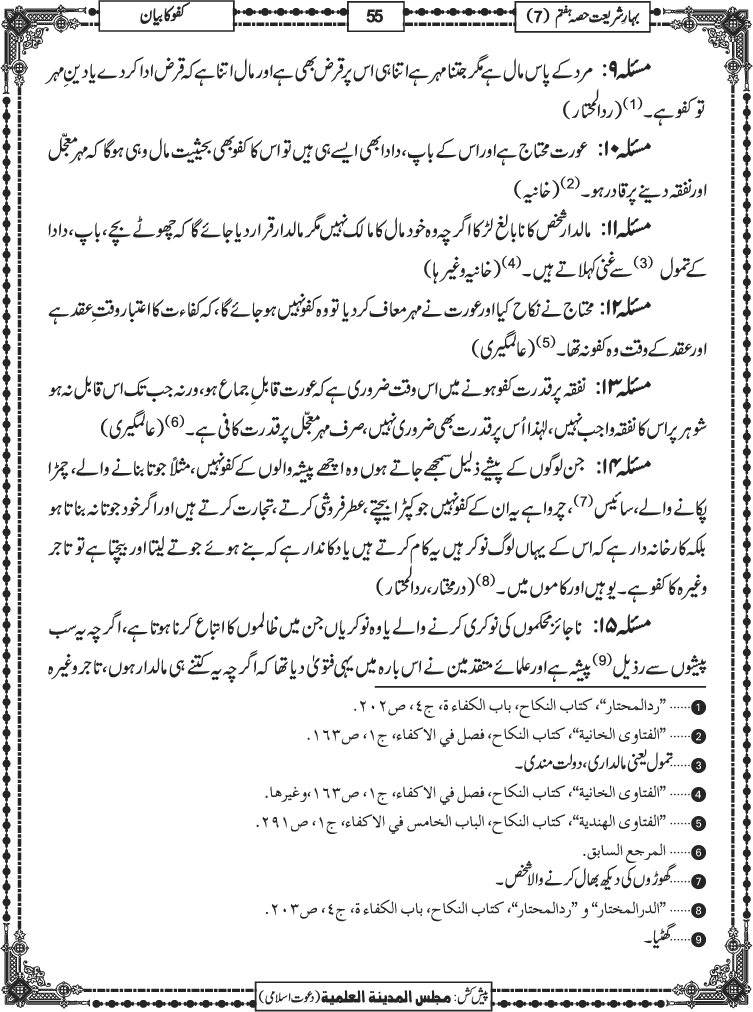 بہارِ شریعت حصہ ہفتم (7)
55
کفو کا بیان
مسئلہ ۹: مرد کے پاس مال ہے مگر جتنا مہر ہے اتنا ہی اس پر قرض بھی ہے اور مال اتنا ہے کہ قرض ادا کردے یا دَینِ مہر
تو کفو ہے۔(1) (ردالمحتار)
مسئلہ ۱۰: عورت محتاج ہے اور اس کے باپ، دادا بھی ایسے ہی ہیں تو اس کا کفو بھی بحیثیت مال وہی ہوگا کہ مہر معجّل
اور نفقہ دینے پر قادر ہو۔(2) (خانیہ)
مسئلہ ۱۱: مالدار شخص کا نابالغ لڑکا اگرچہ وہ خود مال کا مالک نہیں مگر مالدار قرار دیا جائے گا کہ چھوٹے بچے، باپ، دادا
کے تمول (3) سے غنی کہلاتے ہیں۔(4) (خانیہ وغیرہا)
مسئلہ ۱۲: محتاج نے نکاح کیا اور عورت نے مہر معاف کر دیا تو وہ کفو نہیں ہو جائے گا، کہ کفاءت کا اعتبار وقتِ عقد ہے
اور عقد کے وقت وہ کفو نہ تھا۔(5) (عالمگیری)
مسئلہ ۱۳: نفقہ پر قدرت کفو ہونے میں اس وقت ضروری ہے کہ عورت قابلِ جماع ہو، ورنہ جب تک اس قابل نہ ہو
شوہر پر اس کا نفقہ واجب نہیں، لہٰذا اُس پر قدرت بھی ضروری نہیں، صرف مہر معجّل پر قدرت کافی ہے۔(6) (عالمگیری)
مسئلہ ۱۴: جن لوگوں کے پیشے ذلیل سمجھے جاتے ہوں وہ اچھے پیشہ والوں کے کفو نہیں، مثلاً جوتا بنانے والے، چمڑا
پکانے والے، سائیس (7)، چرواہے یہ ان کے کفو نہیں جو کپڑا بیچتے، عطر فروشی کرتے، تجارت کرتے ہیں اور اگر خود جوتا نہ بناتا ہو
بلکہ کارخانہ دار ہے کہ اس کے یہاں لوگ نوکر ہیں یہ کام کرتے ہیں یا دکاندار ہے کہ بنے ہوئے جوتے لیتا اور بیچتا ہے تو تاجر
وغیرہ کا کفو ہے۔ یوہیں اور کاموں میں۔(8) (درمختار، ردالمحتار)
مسئلہ ۱۵: ناجائز محکموں کی نوکری کرنے والے یا وہ نوکریاں جن میں ظالموں کا اتباع کرنا ہوتا ہے، اگرچہ یہ سب
پیشوں سے رذیل (9) پیشہ ہے اور علمائے متقدمین نے اس بارہ میں یہی فتویٰ دیا تھا کہ اگرچہ یہ کتنے ہی مالدار ہوں، تاجر وغیرہ
1 ...... ”ردالمحتار“، کتاب النکاح، باب الکفاءة، ج٤، ص٢٠٢.
2 ...... ”الفتاوی الخانية“، کتاب النکاح، فصل في الاکفاء، ج١، ص١٦٣.
3 ...... تمول یعنی مالداری، دولت مندی۔
4 ...... ”الفتاوی الخانية“، کتاب النکاح، فصل في الاکفاء، ج١، ص١٦٣،وغيرها.
5 ...... ”الفتاوی الهندية“، کتاب النکاح، الباب الخامس في الاکفاء، ج١، ص٢٩١.
6 ...... المرجع السابق.
7 ...... گھوڑوں کی دیکھ بھال کرنے والا شخص۔
8 ...... ”الدرالمختار“ و ”ردالمحتار“، کتاب النکاح، باب الکفاءة، ج٤، ص٢٠٣.
9 ...... گھٹیا۔
پیش کش: مجلس المدينة العلمية (دعوت اسلامی)